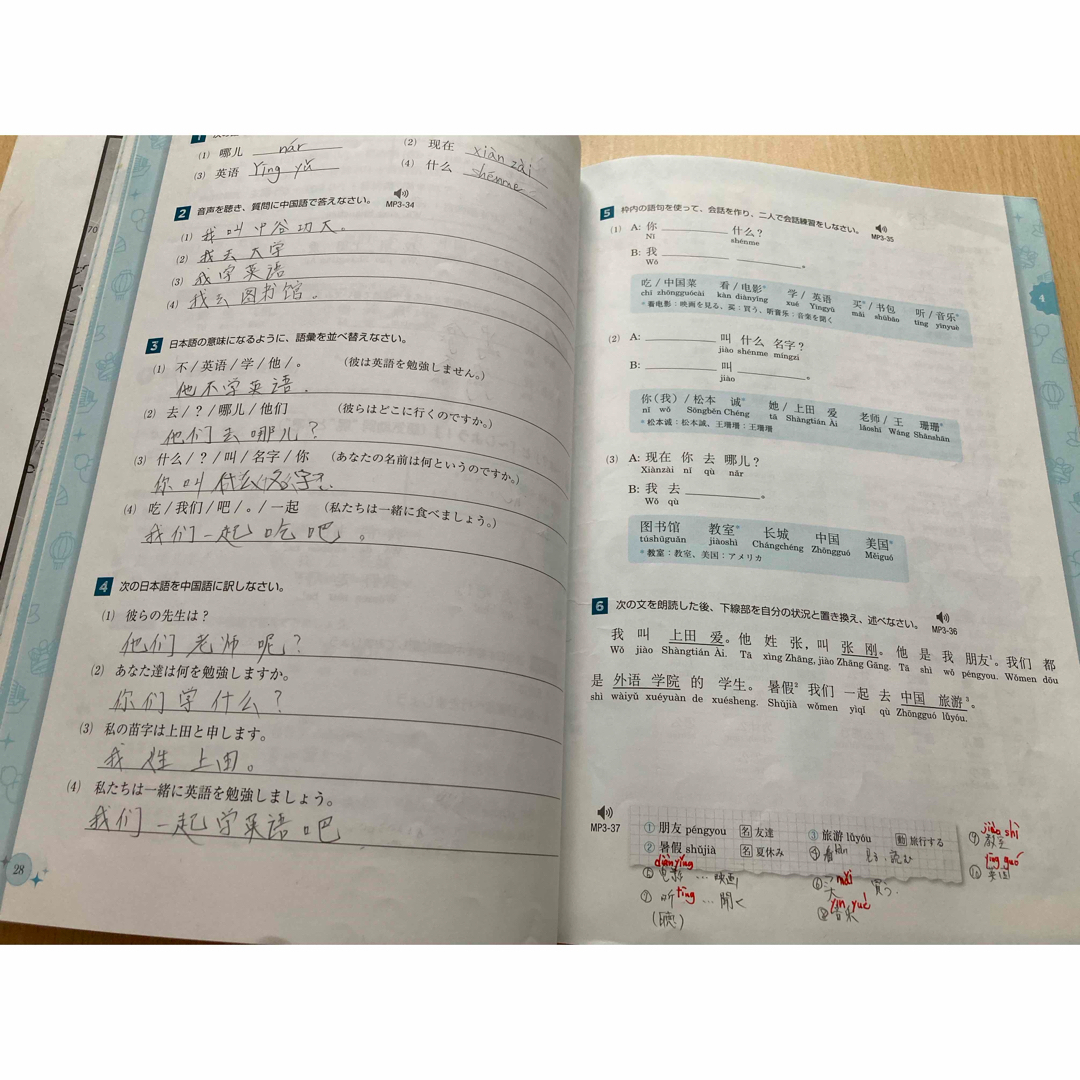 (1) 哪儿 nár
(2) 现在 xiàn zài
(3) 英语 Yīng yǔ
(4) 什么 shénme
2 音声を聴き、質問に中国語で答えなさい。 MP3-34
(1) 我叫中谷功大。
(2) 我去大学
(3) 我学英语
(4) 我去图书馆.
3 日本語の意味になるように、語彙を並べ替えなさい。
(1) 不/英语/学/他/。 (彼は英語を勉強しません。)
他不学英语.
(2) 去/?/哪儿/他们 (彼らはどこに行くのですか。)
他们去哪儿?
(3) 什么/?/叫/名字/你 (あなたの名前は何というのですか。)
你叫什么名字?
(4) 吃/我们/吧/。/一起 (私たちは一緒に食べましょう。)
我们一起吃吧。
4 次の日本語を中国語に訳しなさい。
(1) 彼らの先生は?
他们老师呢?
(2) あなた達は何を勉強しますか。
你们学什么?
(3) 私の苗字は上田と申します。
我姓上田。
(4) 私たちは一緒に英語を勉強しましょう。
我们一起学英语吧
28
5 枠内の語句を使って、会話を作り、二人で会話練習をしなさい。 MP3-35
(1) A: 你 什么?
Nǐ shénme
B: 我 。
Wǒ
吃/中国菜 看/电影* 学/英语 买*/书包 听/音乐*
chī zhōngguócài kàn diànyǐng xué Yīngyǔ mǎi shūbāo tīng yīnyuè
*看电影:映画を見る、买:買う、听音乐:音楽を聞く
4
(2) A: 叫 什么 名字?
jiào shénme míngzi
B: 叫 。
jiào
你(我)/松本 诚* 她/上田 爱 老师/王 珊珊*
nǐ wǒ Sōngběn Chéng tā Shàngtián Ài lǎoshī Wáng Shānshān
*松本诚:松本誠、王珊珊:王珊珊
(3) A: 现在 你 去 哪儿?
Xiànzài nǐ qù nǎr
B: 我 去 。
Wǒ qù
图书馆 教室* 长城 中国 美国*
túshūguǎn jiàoshì Chángchéng Zhōngguó Měiguó
*教室:教室、美国:アメリカ
6 次の文を朗読した後、下線部を自分の状況と置き換え、述べなさい。 MP3-36
我 叫 上田 爱。他 姓 张,叫 张 刚。他 是 我 朋友¹。我们 都
Wǒ jiào Shàngtián Ài. Tā xìng Zhāng, jiào Zhāng Gāng. Tā shì wǒ péngyou. Wǒmen dōu
是 外语 学院 的 学生。暑假² 我们 一起 去 中国 旅游³。
shì wàiyǔ xuéyuàn de xuésheng. Shǔjià wǒmen yìqǐ qù Zhōngguó lǚyóu.
MP3-37
① 朋友 péngyou 名 友達 ③ 旅游 lǚyóu 動 旅行する
② 暑假 shǔjià 名 夏休み ④看 kàn 見る、読む
diànyǐng
⑤电影 … 映画
mǎi
⑥ 买 買う.
⑦ 听 tīng … 聞く
(聴)
yīn yuè
⑧音乐
jiào shì
⑨ 教室
⑩